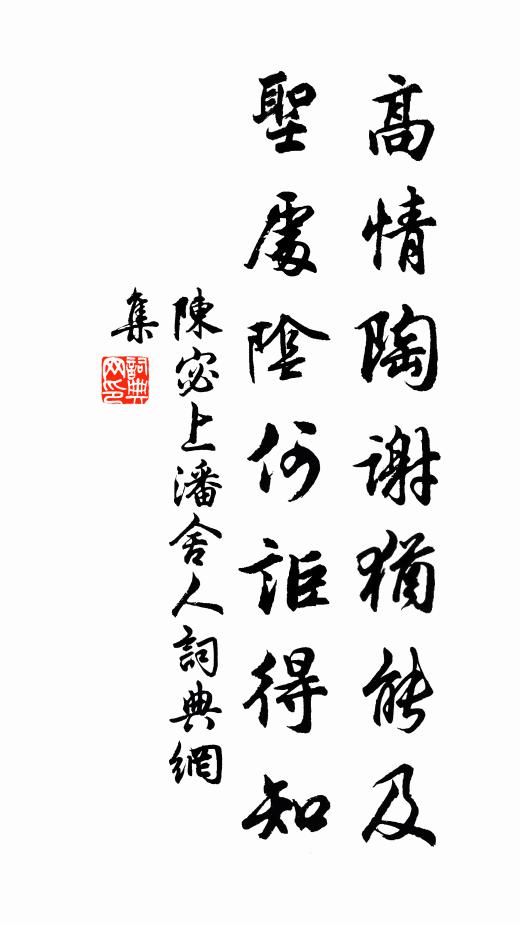 高情陶謝猶能及
聖處陰何詎得知
陳宓上潘舍人詞典網
集
詞典
網印